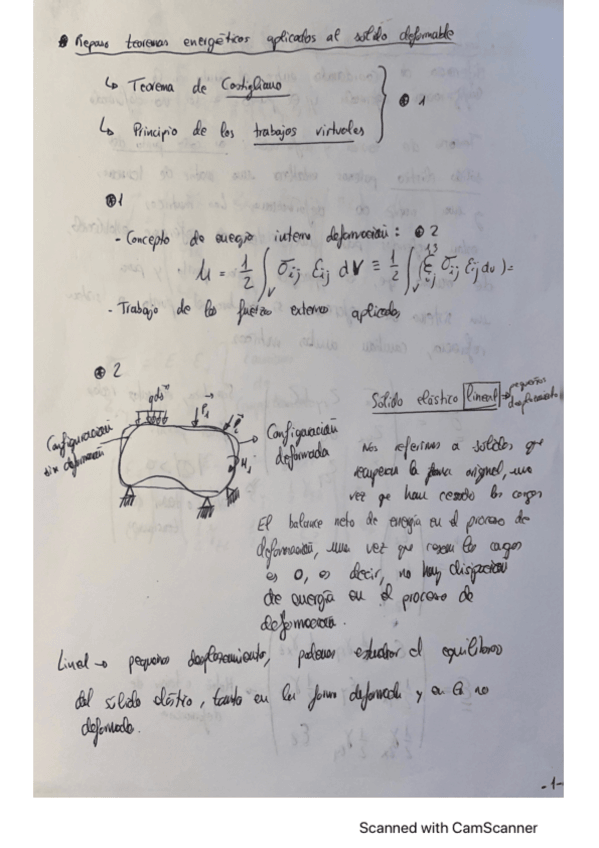 Repaso teoremas energéticos aplicados al sólido deformable
↳ Teorema de Castigliano
↳ Principio de los trabajos virtuales
1
1
- Concepto de energía interna deformación: 2
μ = 1/2 ∫v σij εij dV ≡ 1/2 ∫v ( σij εij dv ) =
- Trabajo de las fuerzas externas aplicadas
2
Configuración
sin deformación
Configuración
deformada
Sólido elástico lineal → pequeños
desplazamientos
Nos referimos a sólidos que
recuperan la forma original, una
vez que han cesado las cargas
El balance neto de energía en el proceso de
deformación, una vez que cesan las cargas
es 0, es decir, no hay disipación
de energía en el proceso de
deformación.
Lineal → pequeños desplazamiento, podemos estudiar el equilibrio
del sólido elástico, tanto en la forma deformada y en la no
deformada.
-1-
Scanned with CamScanner